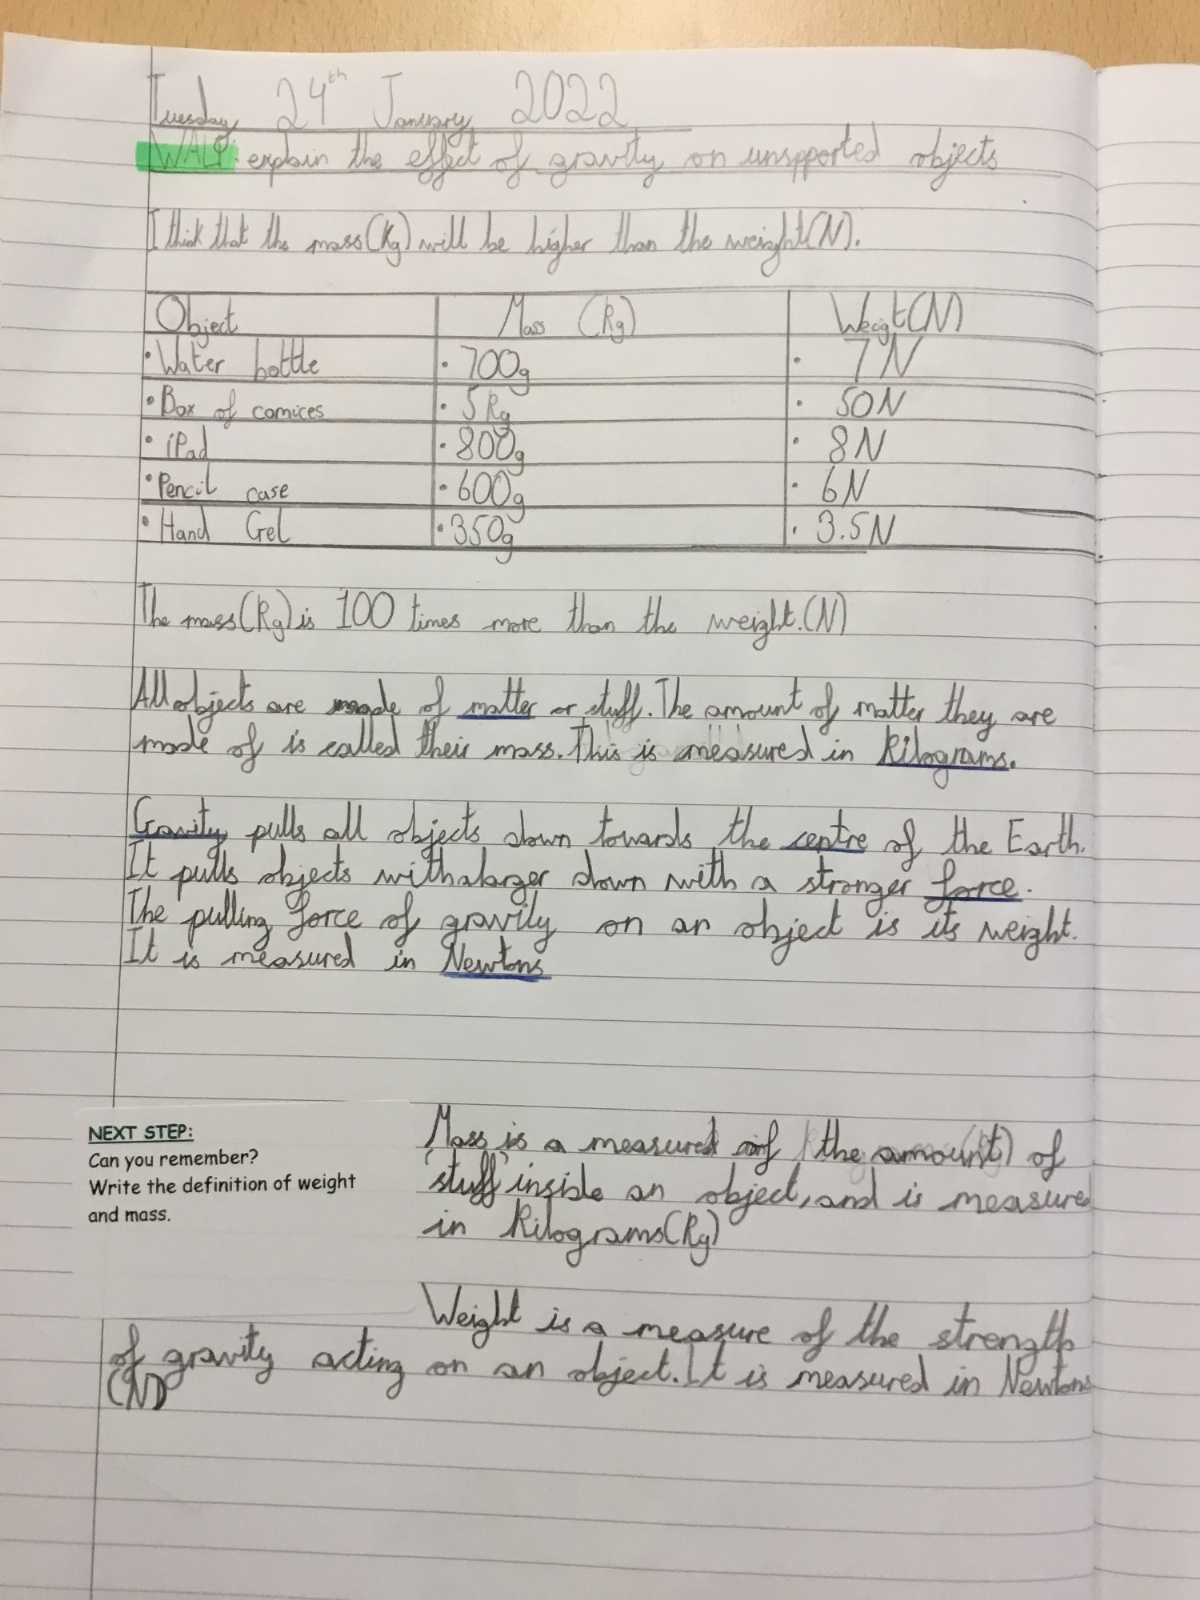 Tuesday 24th January 2022
WALT: explain the effect of gravity on unspported objects
I think that the mass(Kg) will be higher than the weight(N).
Object Mass (Kg) Weigt(N)
• Water bottle • 700g • 7N
• Box of comices • 5Kg • 50N
• iPad • 800g • 8N
• Pencil case • 600g • 6N
• Hand Gel • 350g • 3.5N
The mass(Kg) is 100 times more than the weight.(N)
All objects are made of matter or stuff. The amount of matter they are
made of is called their mass. This is measured in Kilograms.
Gravity pulls all objects down towards the centre of the Earth.
It pulls objects with a larger down with a stronger force.
The pulling force of gravity on an object is its weight.
It is measured in Newtons
NEXT STEP:
Can you remember?
Write the definition of weight
and mass.
Mass is a measured of the amount of
'stuff' inside an object, and is measured
in Kilograms(Kg)
Weight is a measure of the strength
of gravity acting on an object. It is measured in Newtons
(N)